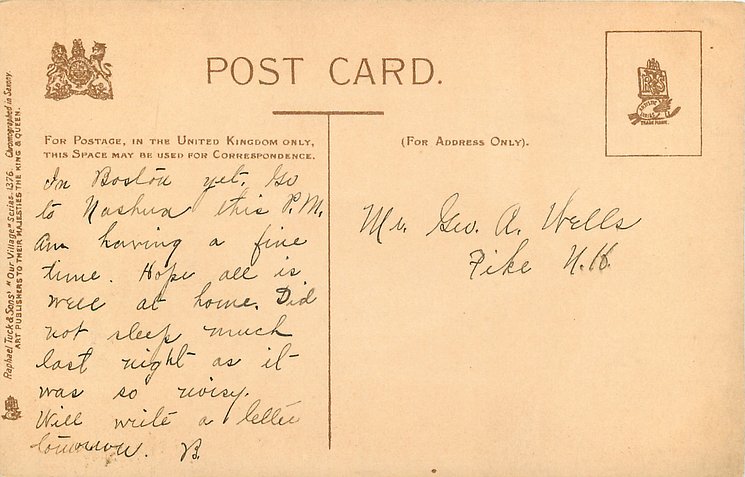 POST CARD.
FOR POSTAGE, IN THE UNITED KINGDOM ONLY,
THIS SPACE MAY BE USED FOR CORRESPONDENCE.
(FOR ADDRESS ONLY).
TRADE MARK.
Raphael Tuck & Sons' "Our Village" Series. 1376. Chromographed in Saxony.
ART PUBLISHERS TO THEIR MAJESTIES THE KING & QUEEN.
In Boston yet. Go
to Nashua this P.M.
Am having a fine
time. Hope all is
well at home. Did
not sleep much
last night as it
was so noisy.
Will write a letter
tomorrow. B.
Mr. Geo. A. Wells
Pike N.H.